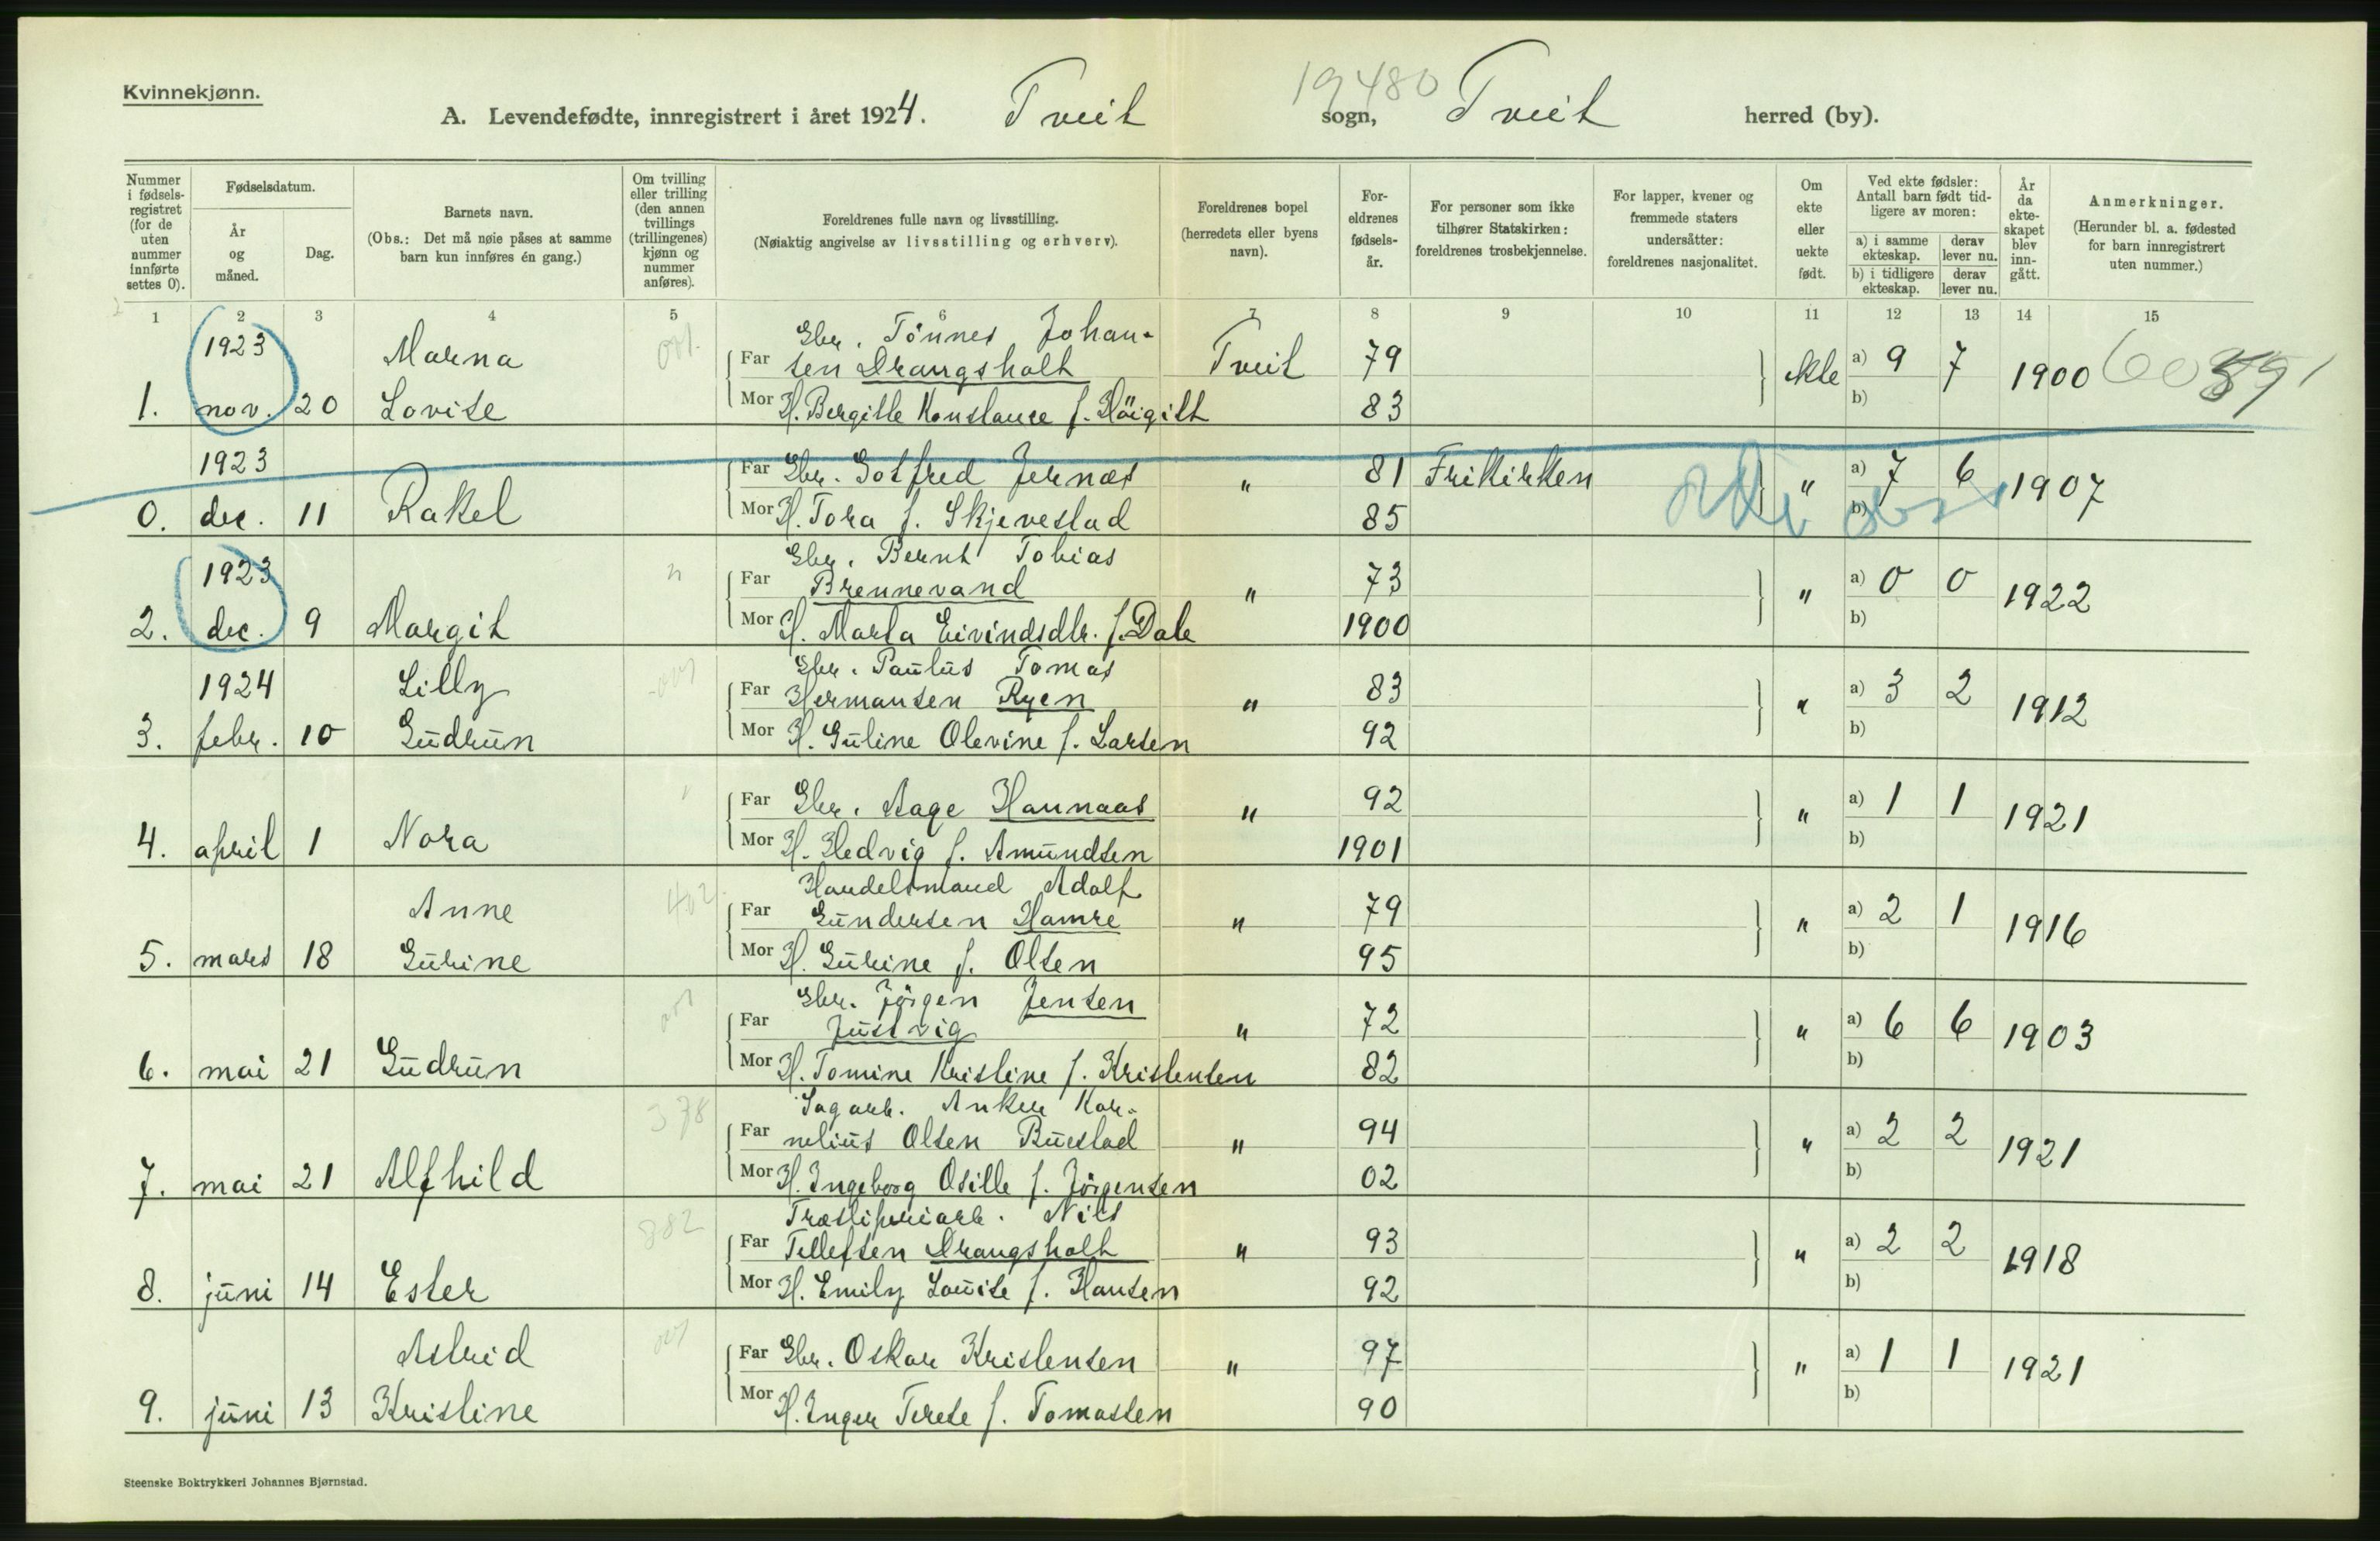 Kvinnekjønn.
19480
A. Levendefødte, innregistrert i året 1924. Tveit sogn, Tveit herred (by).
Nummer i fødsels-registret (for de uten nummer innførte settes 0).
Fødselsdatum.
År og måned.
Dag.
Barnets navn.
(Obs.: Det må nøie påses at samme barn kun innføres én gang.)
Om tvilling eller trilling (den annen tvillings (trillingenes) kjønn og nummer anføres).
Foreldrenes fulle navn og livsstilling.
(Nøiaktig angivelse av livsstilling og erhverv).
Foreldrenes bopel (herredets eller byens navn).
For-eldrenes fødsels-år.
For personer som ikke tilhører Statskirken: foreldrenes trosbekjennelse.
For lapper, kvener og fremmede staters undersåtter: foreldrenes nasjonalitet.
Om ekte eller uekte født.
Ved ekte fødsler: Antall barn født tid-ligere av moren:
a) i samme ekteskap. derav lever nu.
b) i tidligere ekteskap. derav lever nu.
År da ekte-skapet blev inn-gått.
Anmerkninger.
(Herunder bl. a. fødested for barn innregistrert uten nummer.)
1 2 3 4 5 6 7 8 9 10 11 12 13 14 15
1923 Marna Gbr. Tönnes Johan-
Far sen Drangsholt Tveit 79 ekte a) 9 7 1900
1. nov. 20 Lovise Mor H. Bergitte Konstance f. Höigilt 83 b)
1923 Far Gbr. Gotfred Jernæs " 81 Frikirken " a) 7 6 1907
0. dec. 11 Rakel Mor H. Tora f. Skjevestad 85 b)
Gbr. Bernt Tobias
1923 Far Brennevand " 73 " a) 0 0 1922
2. dec. 9 Margit Mor H. Marta Eivindsdtr. f. Dale 1900 b)
Gbr. Paulus Tomas
1924 Lilly Far Hermansen Ryen " 83 " a) 3 2 1912
3. febr. 10 Gudrun Mor H. Guline Olevine f. Larsen 92 b)
Far Gbr. Aage Hannaas " 92 " a) 1 1 1921
4. april 1 Nora Mor H. Hedvig f. Amundsen 1901 b)
Handelsmand Adolf
Anne 402 Far Gundersen Hamre " 79 " a) 2 1 1916
5. mars 18 Gurine Mor H. Gurine f. Olsen 95 b)
Gbr. Jörgen Jensen
Far Justvig " 72 " a) 6 6 1903
6. mai 21 Gudrun Mor H. Tomine Kristine f. Kristensen 82 b)
378 Sagarb. Anker Kor-
Far nelius Olsen Buestad " 94 " a) 2 2 1921
7. mai 21 Alfhild Mor H. Ingeborg Osille f. Jörgensen 02 b)
882 Træsliperiarb. Nils
Far Tellefsen Drangsholt " 93 " a) 2 2 1918
8. juni 14 Ester Mor H. Emily Louise f. Hansen 92 b)
Astrid Far Gbr. Oskar Kristensen " 97 " a) 1 1 1921
9. juni 13 Kristine Mor H. Inger Terese f. Tomassen 90 b)
Steenske Boktrykkeri Johannes Bjørnstad.